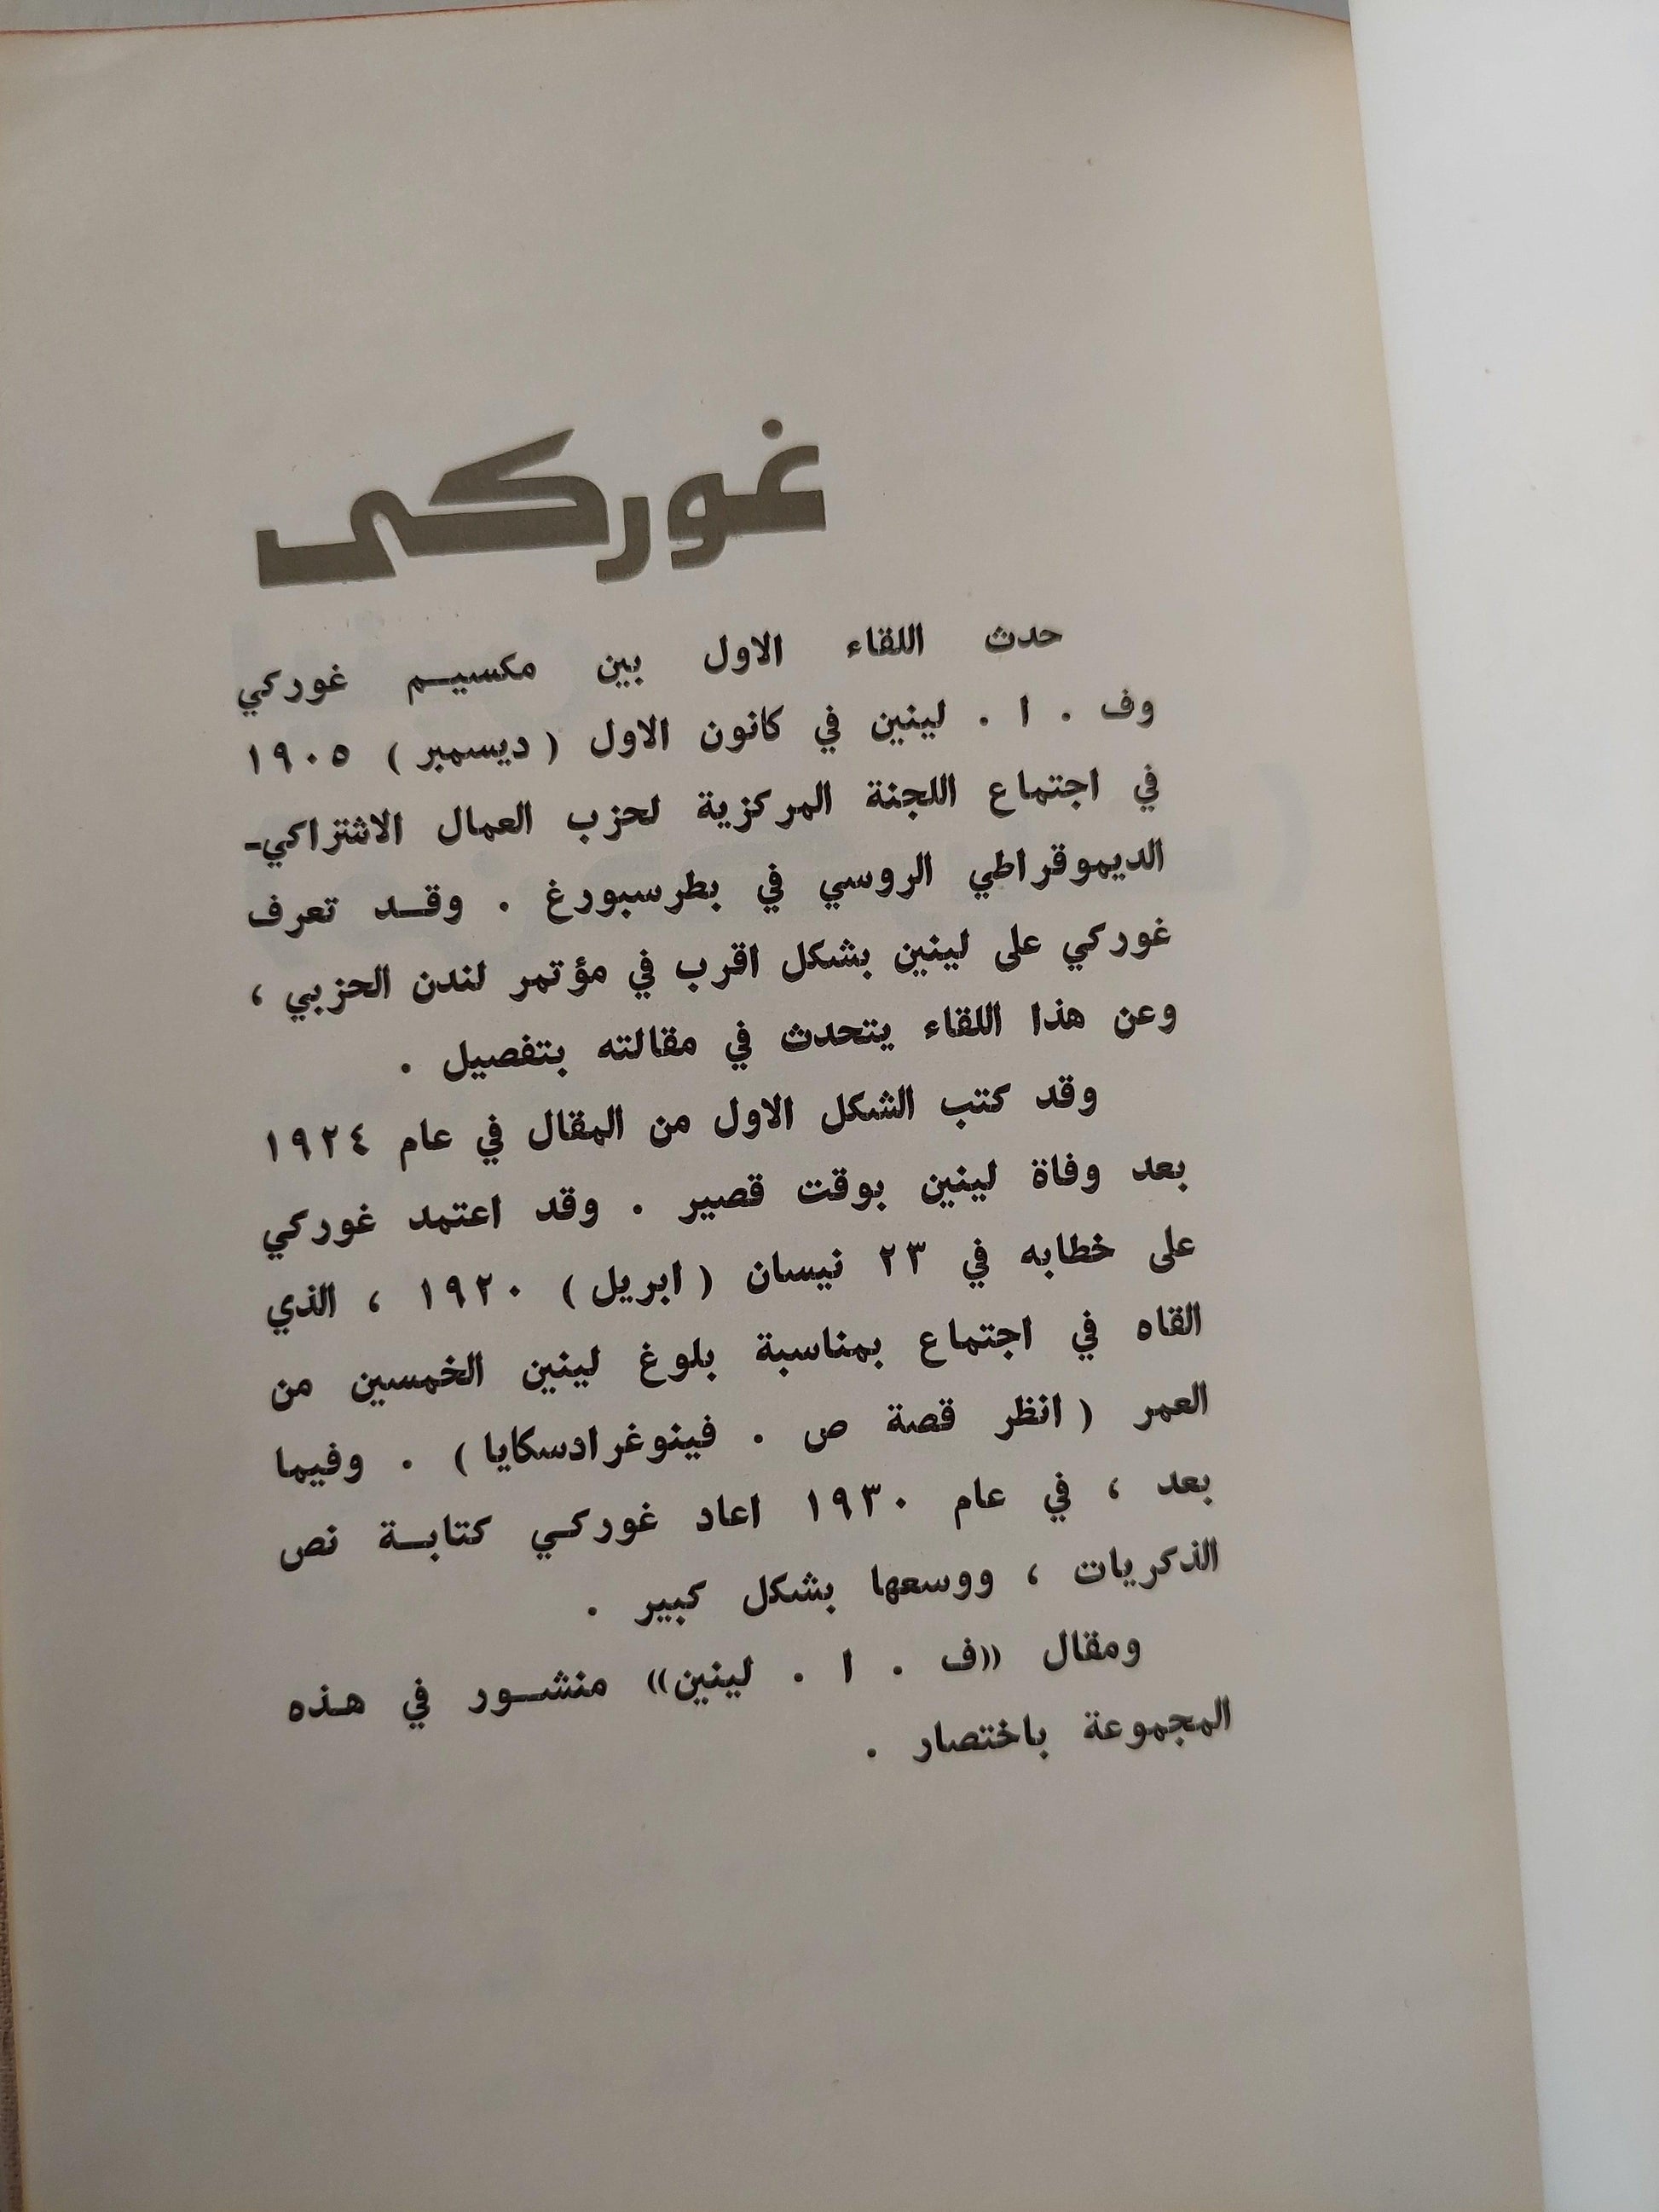 غوركى
حدث اللقاء الاول بين مكسيم غوركي
وف . ا . لينين في كانون الاول ( ديسمبر ) ١٩٠٥
في اجتماع اللجنة المركزية لحزب العمال الاشتراكي-
الديموقراطي الروسي في بطرسبورغ . وقد تعرف
غوركي على لينين بشكل اقرب في مؤتمر لندن الحزبي ،
وعن هذا اللقاء يتحدث في مقالته بتفصيل .
وقد كتب الشكل الاول من المقال في عام ١٩٢٤
بعد وفاة لينين بوقت قصير . وقد اعتمد غوركي
على خطابه في ٢٣ نيسان ( ابريل ) ١٩٢٠ ، الذي
القاه في اجتماع بمناسبة بلوغ لينين الخمسين من
العمر ( انظر قصة ص . فينوغرادسكايا ) . وفيما
بعد ، في عام ١٩٣٠ اعاد غوركي كتابة نص
الذكريات ، ووسعها بشكل كبير .
ومقال «ف . ا . لينين» منشور في هذه
المجموعة باختصار .